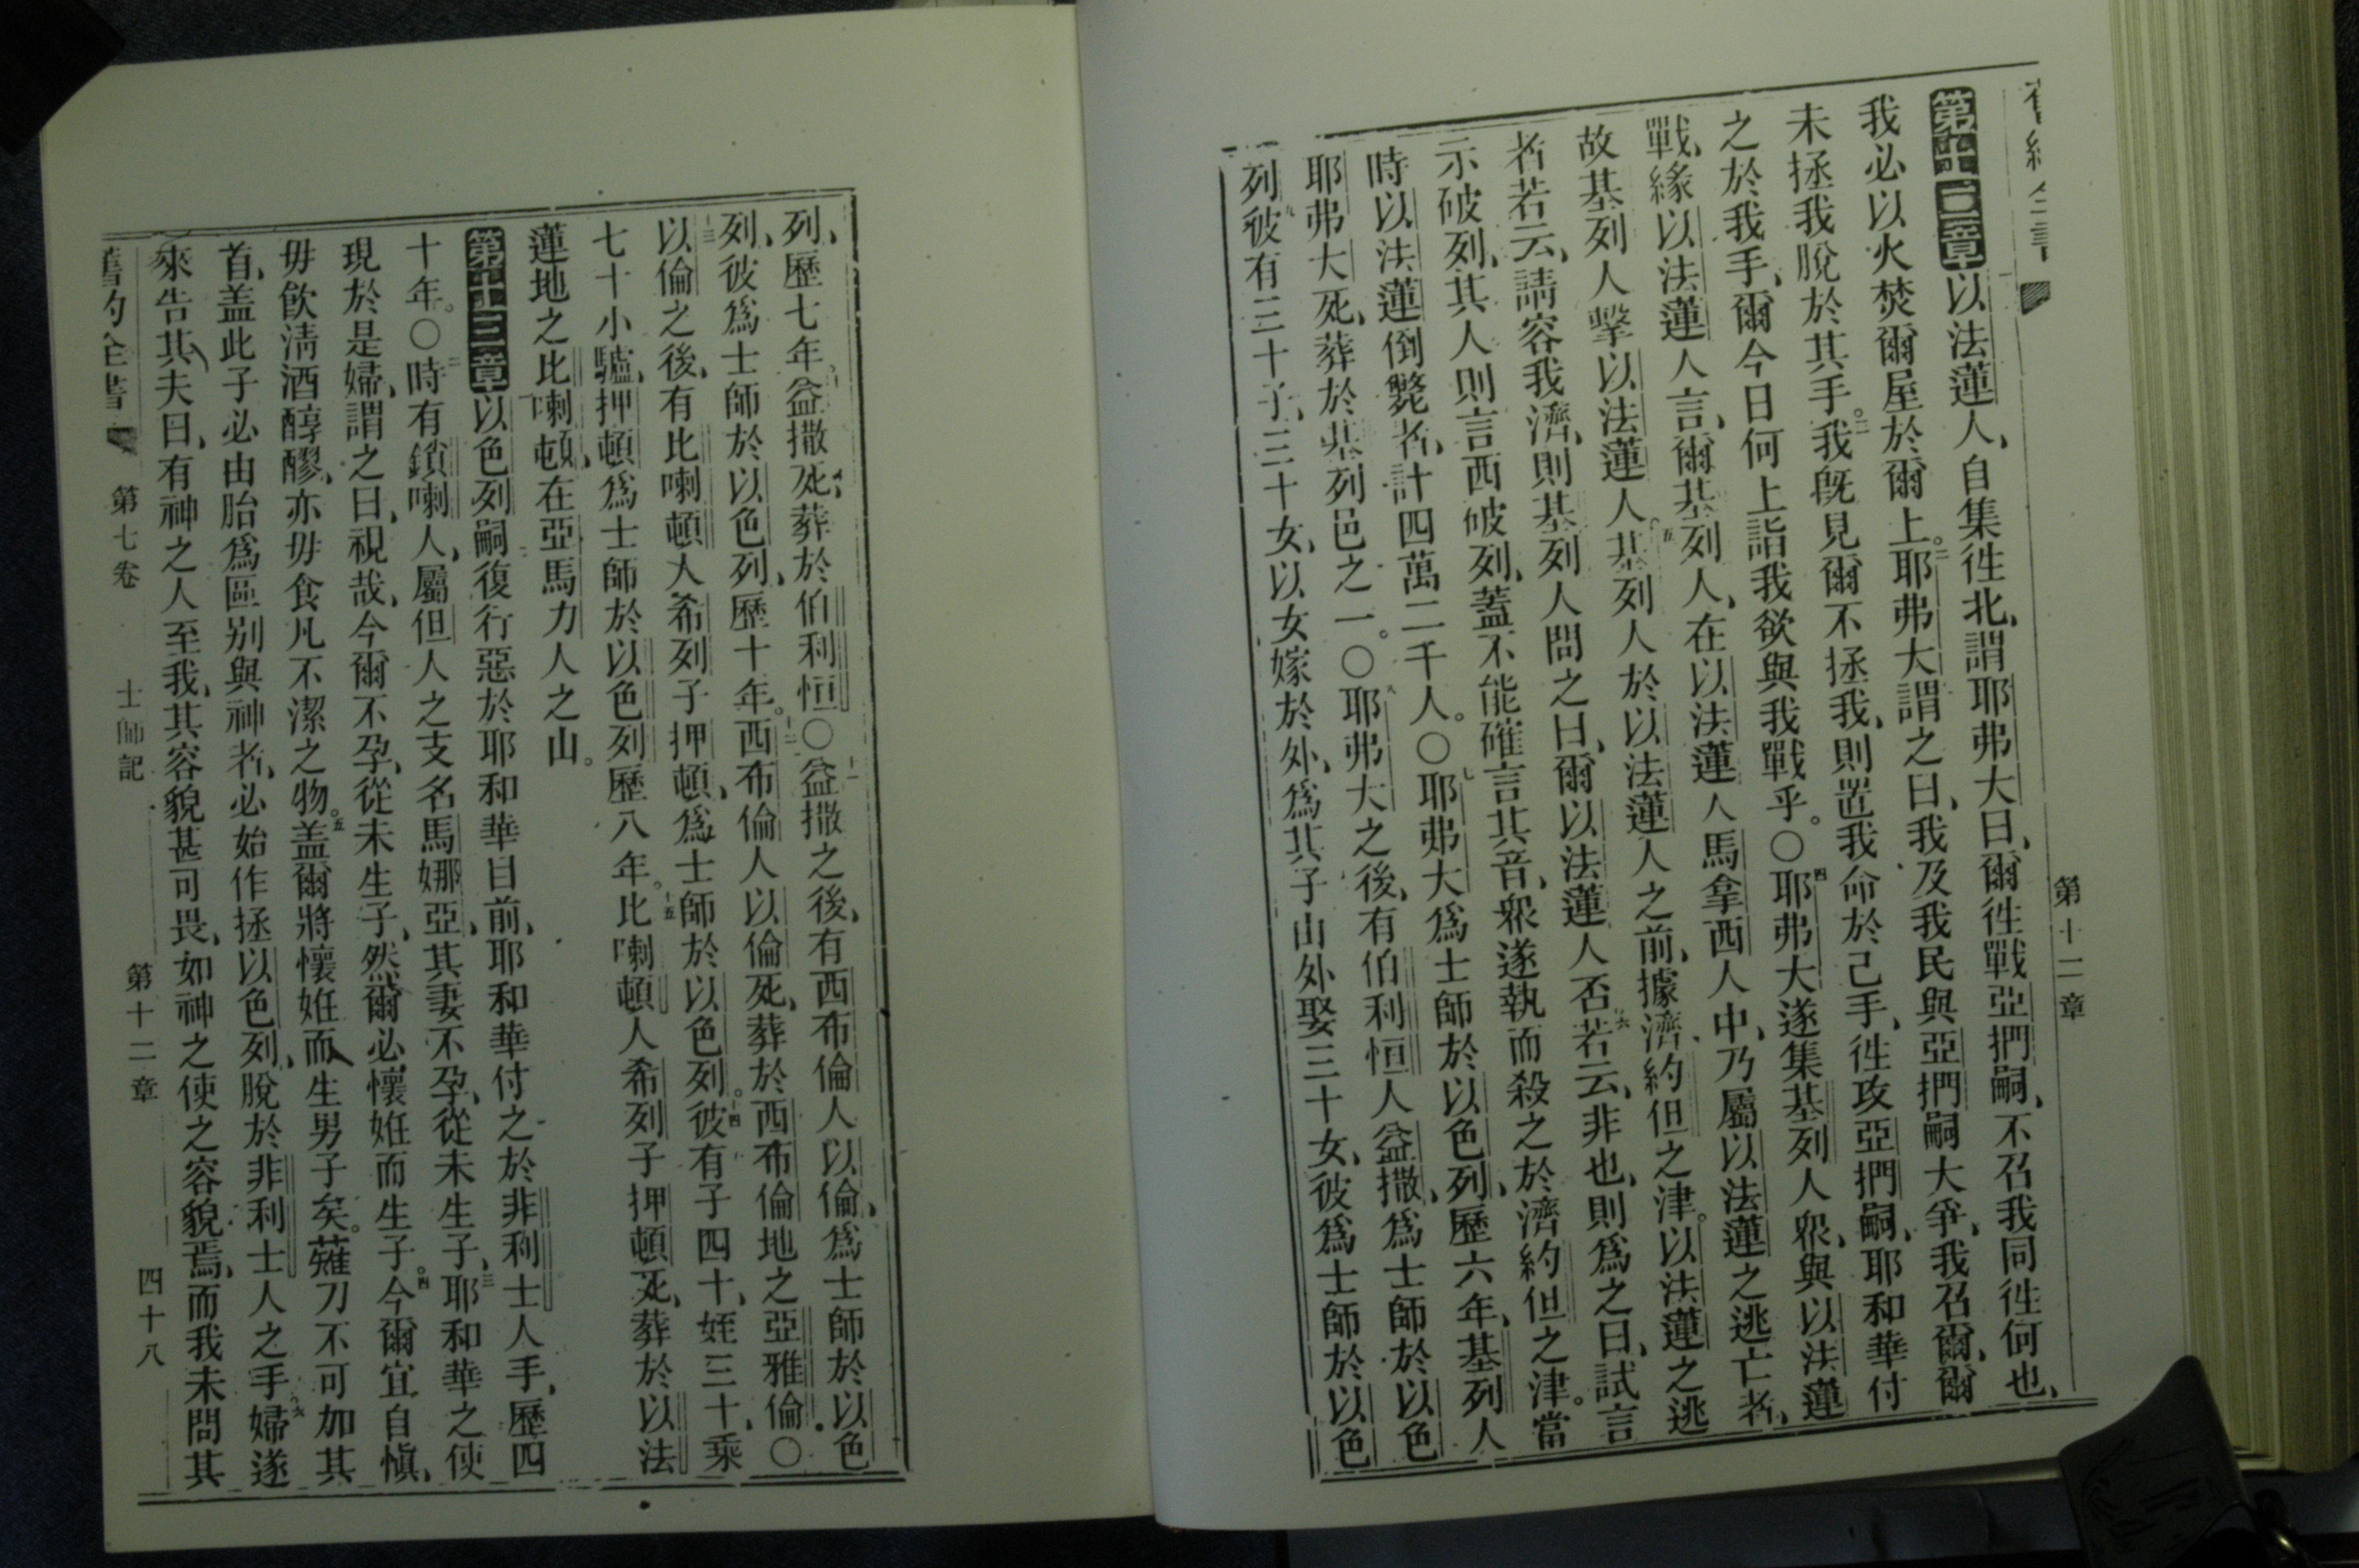 第十二章
第十二章以法蓮人、自集徃北、謂耶弗大曰、爾徃戰亞捫嗣、不召我同徃何也、
我必以火焚爾屋於爾上。二耶弗大謂之曰、我及我民與亞捫嗣大爭、我召爾、爾
未拯我脫於其手。三我旣見爾不拯我、則置我命於己手、徃攻亞捫嗣、耶和華付
之於我手、爾今日何上詣我欲與我戰乎。〇四耶弗大遂集基列人衆、與以法蓮
戰、緣以法蓮人言、爾基列人、在以法蓮人馬拿西人中、乃屬以法蓮之逃亡者、
故基列人擊以法蓮人。五基列人於以法蓮人之前、據濟約但之津。以法蓮之逃
者若云、請容我濟、則基列人問之曰、爾以法蓮人否、若云、非也、六則爲之曰、試言
示破列、其人則言西破列、蓋不能確言其音、衆遂執而殺之於濟約但之津。當
時以法蓮倒斃者、計四萬二千人。〇七耶弗大爲士師於以色列、歷六年、基列人
耶弗大死、葬於基列邑之一。〇八耶弗大之後、有伯利恒人益撒、爲士師於以色
列、九彼有三十子、三十女、以女嫁於外、爲其子由外娶三十女、彼爲士師於以色
列、歷七年。十益撒死、葬於伯利恒〇十一益撒之後、有西布倫人以倫、爲士師於以色
列、彼爲士師於以色列、歷十年。十二西布倫人以倫死、葬於西布倫地之亞雅倫〇
十三以倫之後、有比喇頓人希列子押頓、爲士師於以色列。十四彼有子四十、姪三十、乘
七十小驢、押頓爲士師於以色列歷八年。十五比喇頓人希列子押頓死、葬於以法
蓮地之比喇頓、在亞馬力人之山。
第十三章以色列嗣復行惡於耶和華目前、耶和華付之於非利士人手、歷四
十年。〇二時有鎖喇人、屬但人之支名馬娜亞、其妻不孕、從未生子、三耶和華之使
現於是婦、謂之曰、視哉、今爾不孕、從未生子、然爾必懷姙而生子。四今爾宜自愼、
毋飮淸酒醇醪、亦毋食凡不潔之物。五盖爾將懷姙而生男子矣。薙刀不可加其
首、盖此子必由胎爲區别與神者、必始作拯以色列、脫於非利士人之手。六婦遂
來告其夫曰、有神之人至我、其容貌甚可畏、如神之使之容貌焉、而我未問其
舊約全書 第七卷 士師記 第十二章 四十八